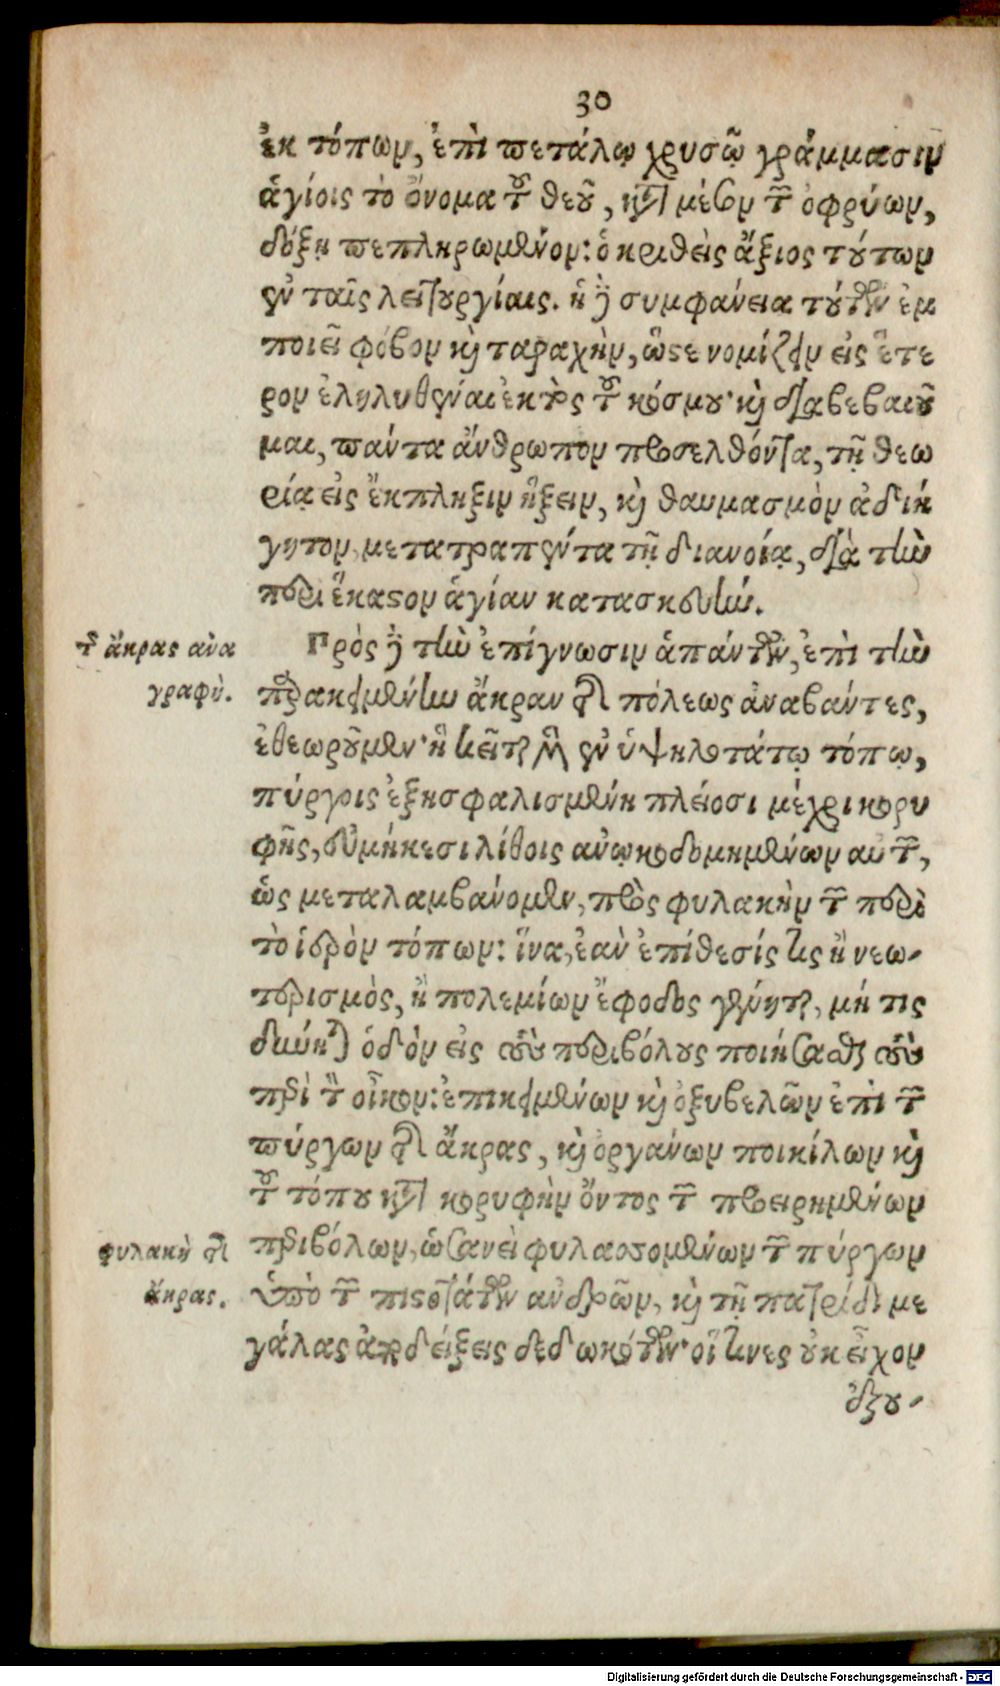 30
ἐκ τόπων, ἐπὶ πετάλῳ χρυσῷ γράμμασιν
ἁγίοις τὸ ὄνομα τοῦ θεοῦ, κατὰ μέσον τῶν ὀφρύων,
δόξῃ πεπληρωμένον: ὁ κριθεὶς ἄξιος τούτων
ἐν ταῖς λειτουργίαις. ἡ δὲ συμφάνεια τούτων ἐμ
ποιεῖ φόβον καὶ ταραχὴν, ὥστε νομίζειν εἰς ἕτε
ρον ἐληλυθέναι ἐκτὸς τοῦ κόσμου· καὶ διαβεβαιοῦ
μαι, πάντα ἄνθρωπον προσελθόντα, τῇ θεω
ρίᾳ εἰς ἔκπληξιν ἥξειν, καὶ θαυμασμὸν ἀδιή
γητον, μετατραπέντα τῇ διανοίᾳ, διὰ τὴν
περὶ ἕκαστον ἁγίαν κατασκευήν.
τῆς ἄκρας ἀνα
γραφή.
Πρὸς δὲ τὴν ἐπίγνωσιν ἁπάντων, ἐπὶ τὴν
παρακειμένην ἄκραν τῆς πόλεως ἀναβάντες,
ἐθεωροῦμεν· ἣ κεῖται μὲν ἐν ὑψηλοτάτῳ τόπῳ,
πύργοις ἐξησφαλισμένη πλείοσι μέχρι κορυ
φῆς, εὐμήκεσι λίθοις ἀνῳκοδομημένων αὐτῶν,
ὡς μεταλαμβάνομεν, πρὸς φυλακὴν τῶν περὶ
τὸ ἱερὸν τόπων: ἵνα, ἐὰν ἐπίθεσίς τις ἢ νεω-
τερισμὸς, ἢ πολεμίων ἔφοδος γένηται, μή τις
δύνηται ὁδὸν εἰς τοὺς περιβόλους ποιήσασθαι τοὺς
περὶ τὸν οἶκον: ἐπικειμένων καὶ ὀξυβελῶν ἐπὶ τῶν
πύργων τῆς ἄκρας, καὶ ὀργάνων ποικίλων καὶ
τοῦ τόπου κατὰ κορυφὴν ὄντος τῶν προειρημένων
φυλακὴ τῆς
ἄκρας.
περιβόλων, ὡσανεὶ φυλασσομένων τῶν πύργων
ὑπὸ τῶν πιστοτάτων ἀνδρῶν, καὶ τῇ πατρίδι με
γάλας ἀποδείξεις δεδωκότων· οἵτινες οὐκ εἶχον
ἐξου-
Digitalisierung gefördert durch die Deutsche Forschungsgemeinschaft - DFG